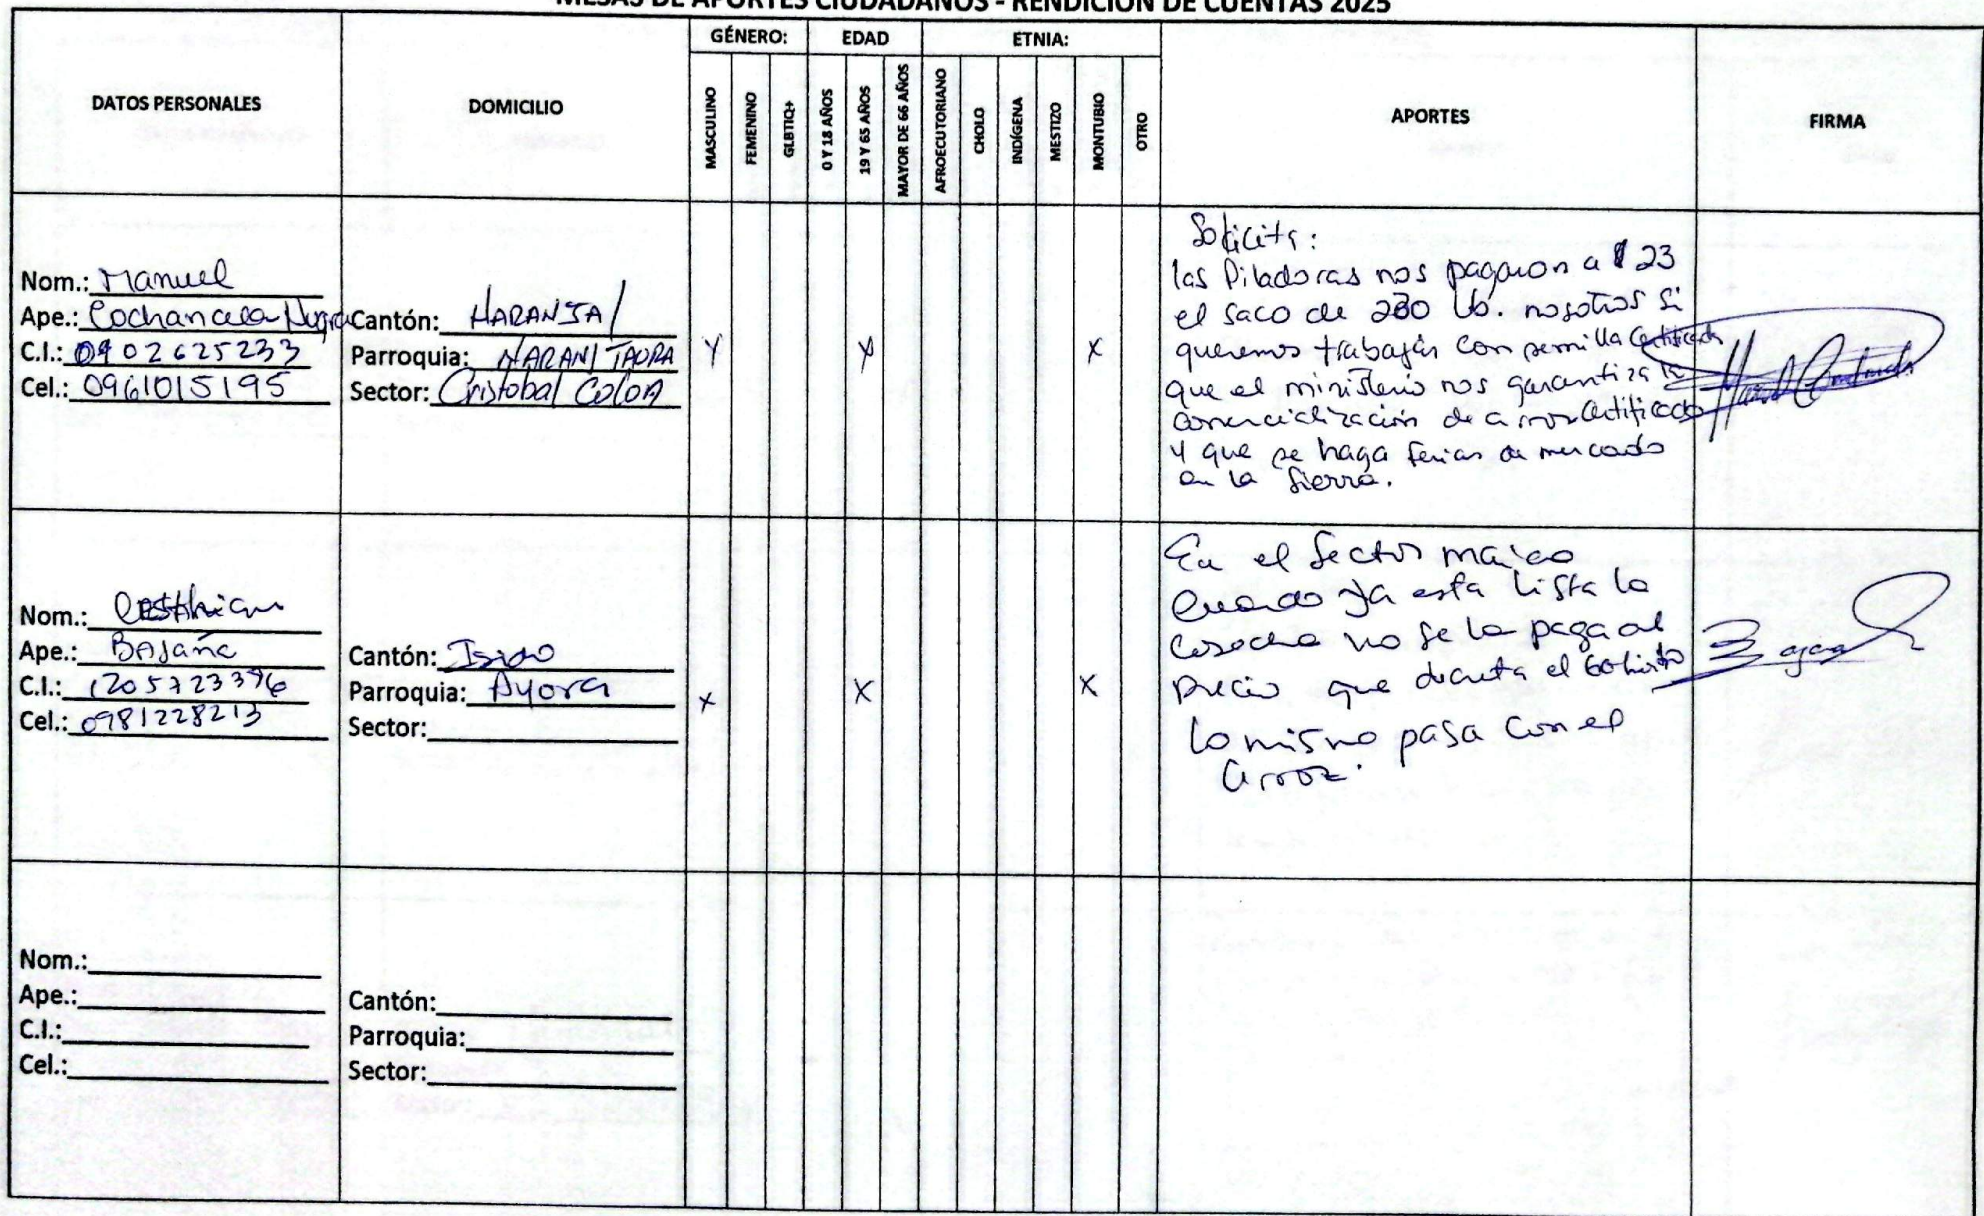 MESAS DE APORTES CIUDADANOS - RENDICIÓN DE CUENTAS 2025
DATOS PERSONALES
DOMICILIO
GÉNERO:
MASCULINO
FEMENINO
GLBTIQ+
EDAD
0 Y 18 AÑOS
19 Y 65 AÑOS
MAYOR DE 66 AÑOS
ETNIA:
AFROECUTORIANO
CHOLO
INDÍGENA
MESTIZO
MONTUBIO
OTRO
APORTES
FIRMA
Nom.: Manuel
Ape.: Cochancela
C.I.: 0902625233
Cel.: 0961015195
Cantón: NARANJAL
Parroquia: NARANJ TAURA
Sector: Cristobal Colon
X X X
Solicita:
las Piladoras nos pagaron a $ 23
el saco de 200 lb. nosotros si
queremos trabajar con semilla certificada
que el ministerio nos garantiza la
comercialización de arroz certificado
y que se haga ferias de mercado
en la Sierra.
Nom.:
Ape.: Bajaña
C.I.: 1205723396
Cel.: 0981228213
Cantón: Isidro
Parroquia: Ayora
Sector:
X X X
En el Sector maiceo
Cuando ya esta lista la
Cosecha no se la paga al
precio que decreta el Gobierno
Lo mismo pasa con el
arroz.
Nom.:
Ape.:
C.I.:
Cel.:
Cantón:
Parroquia:
Sector: